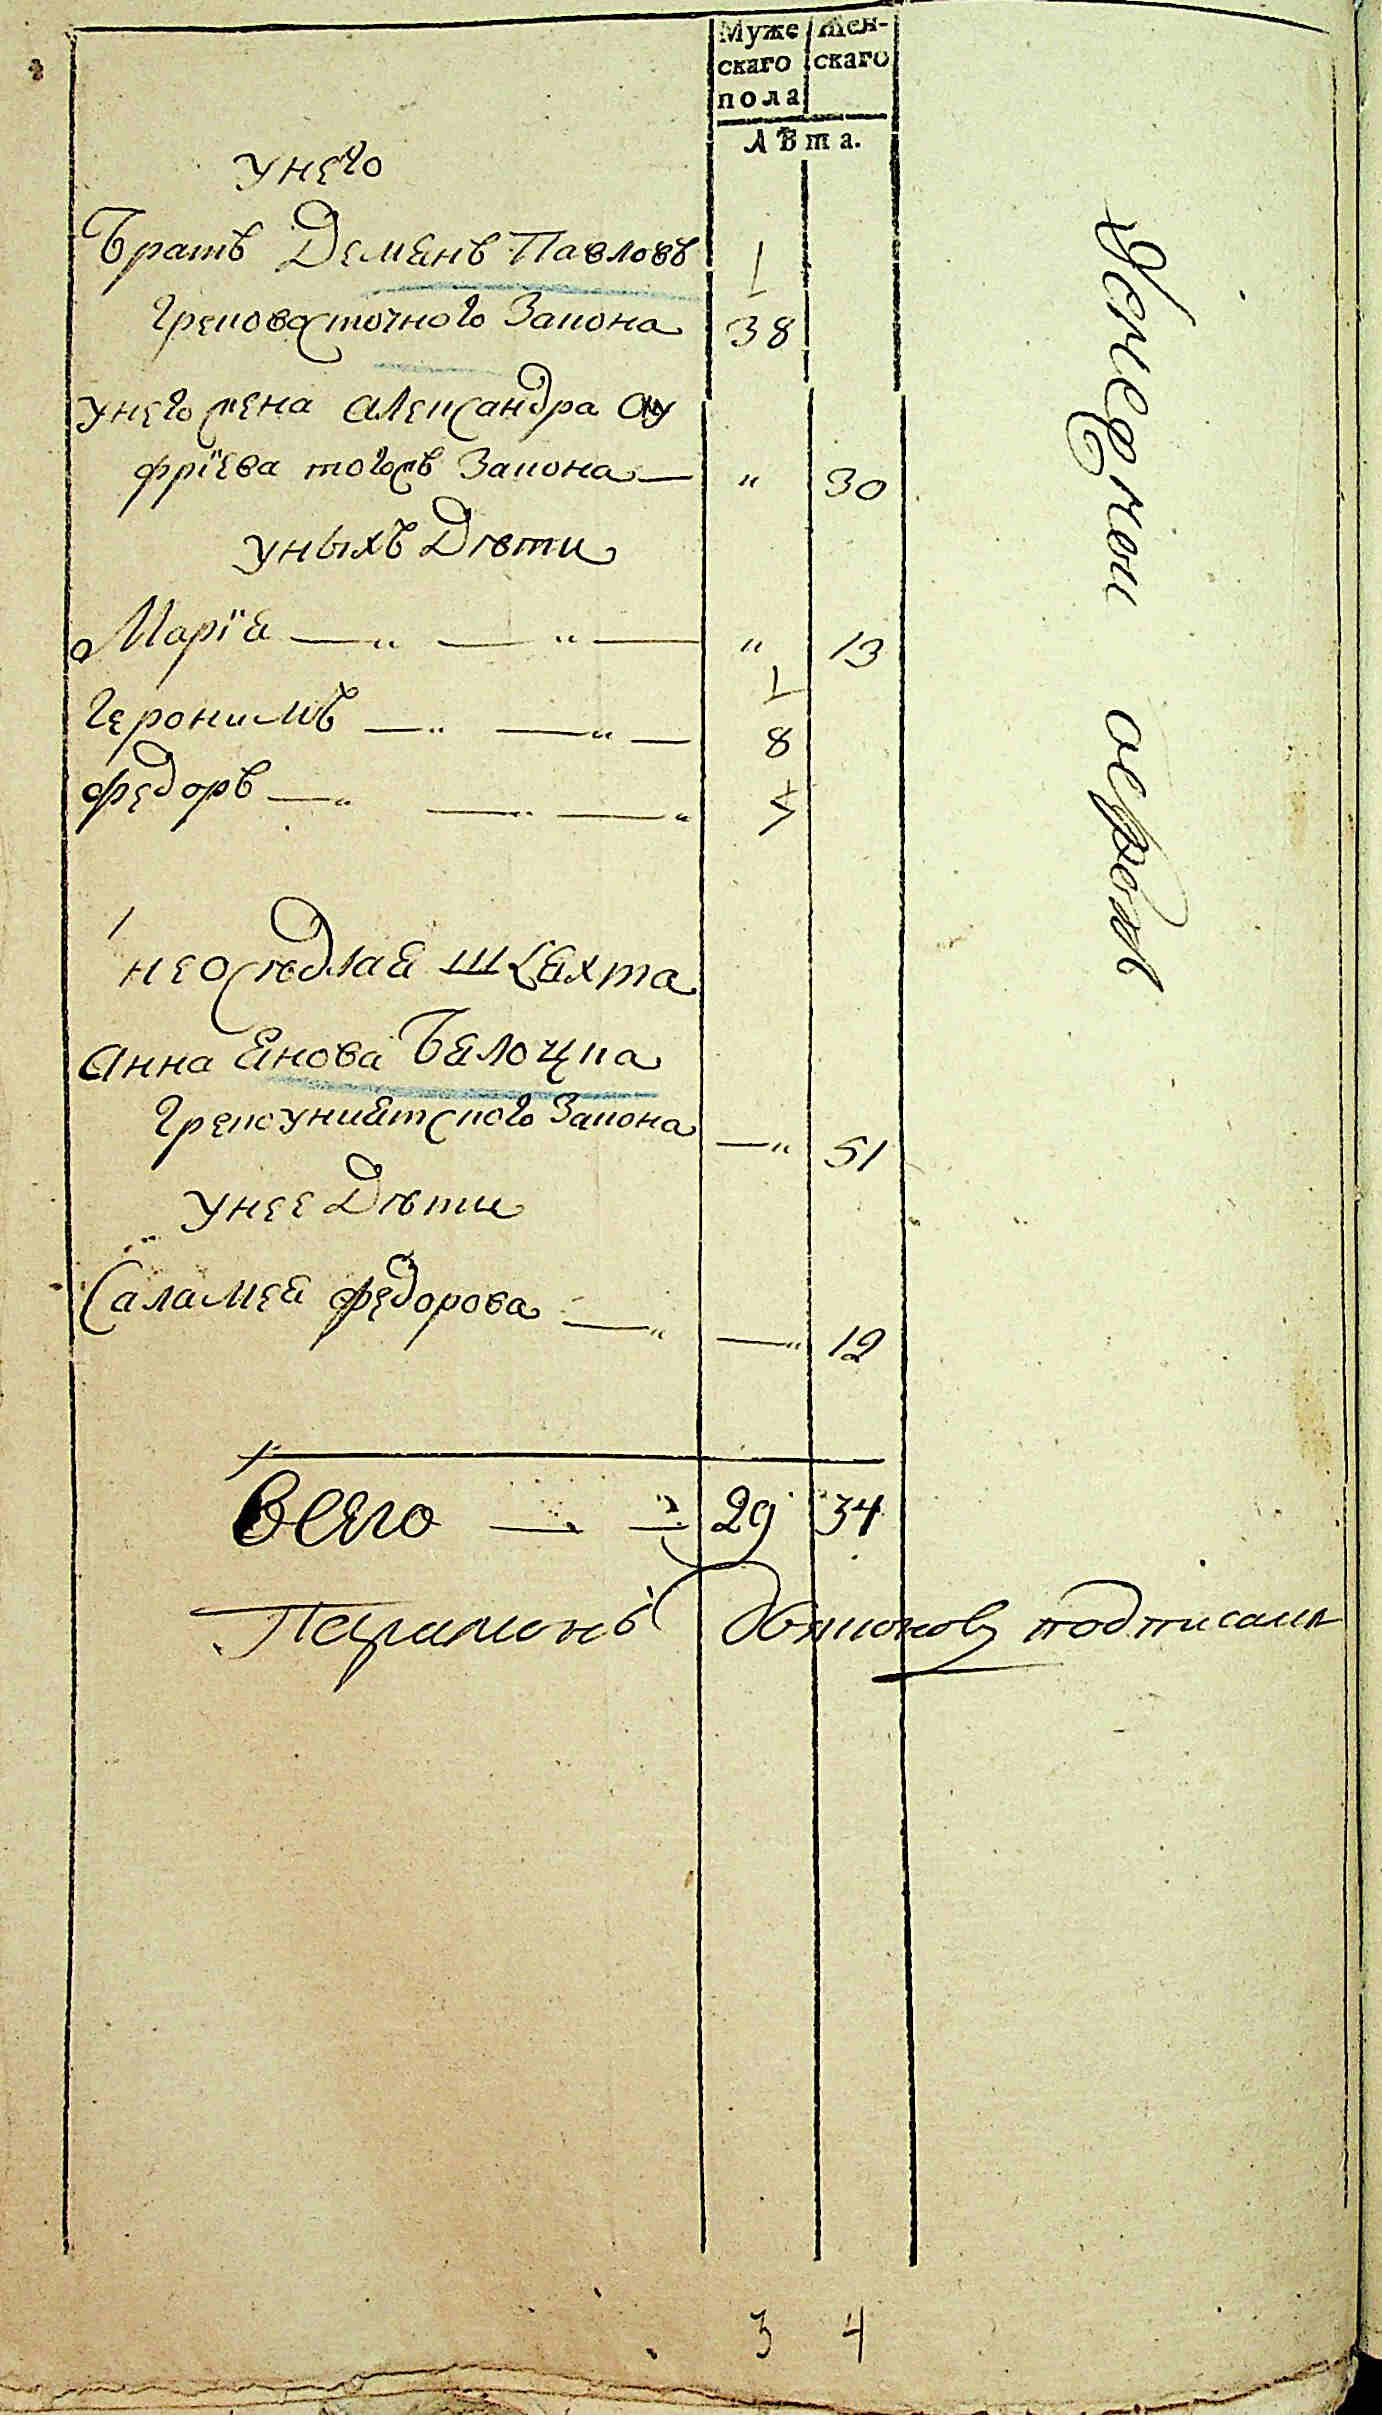 Муже | Жен-
скаго | скаго
пола
Лѣта.
у него
Братъ Демянъ Павловъ 1
Грековосточного Закона 38
у него жена Александра Ону
фріева тогожъ Закона — " 30
у ныхъ Дѣти
Марія — " — " — " 13
1
Геронимъ — " — " — 8
Федоръ — " — — " 5
неосѣдлая шляхта
Анна Янова Бялоцка
Грекоуниятского Закона — " 51
у нее Дѣти
Саламея Федорова — " — " 12
Всего — " — 29 34
подписали
3 4